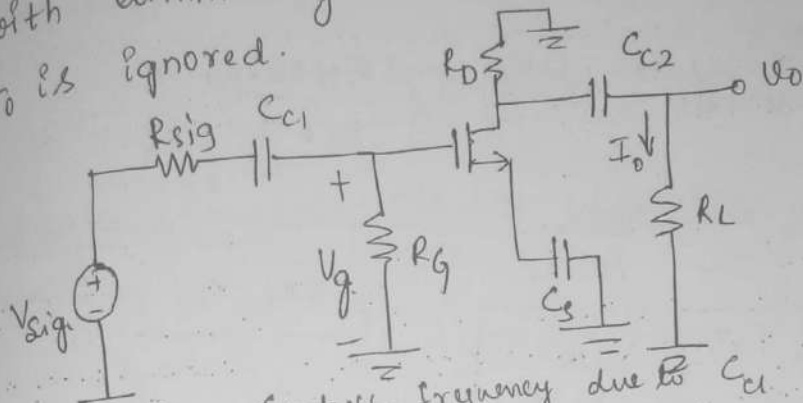 with
r₀ is ignored.
R_D
C_C2
υ₀
Rsig
C_C1
I₀
+
R_L
V_g
R_G
+
-
V_sig
C_S
-
frequency due to C_C1